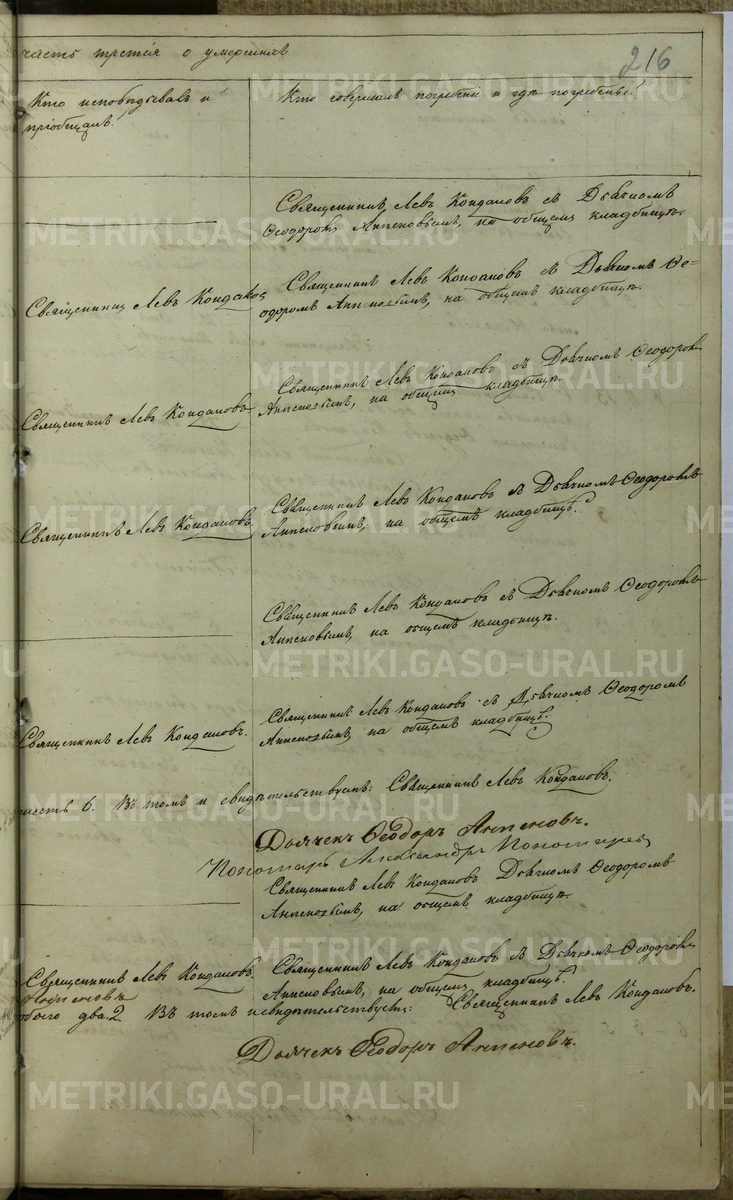 часть третія о умершихъ
216
Кто исповѣдывалъ и
пріобщалъ.
Кто совершалъ погребеніе и гдѣ погребены.
Священникъ Левъ Кондаковъ съ Дьячкомъ
Ѳеодоромъ Антеновымъ, на общемъ кладбищѣ.
Священникъ Левъ Кондаков
Священникъ Левъ Кондаковъ съ Дьячкомъ Ѳе-
одоромъ Антеновымъ, на общемъ кладбищѣ.
Священникъ Левъ Кондаковъ.
Священникъ Левъ Кондаковъ съ Дьячкомъ Ѳеодоромъ
Антеновымъ, на общемъ кладбищѣ.
Священникъ Левъ Кондаковъ.
Священникъ Левъ Кондаковъ съ Дьячкомъ Ѳеодоромъ
Антеновымъ, на общемъ кладбищѣ.
Священникъ Левъ Кондаковъ съ Дьячкомъ Ѳеодоромъ
Антеновымъ, на общемъ кладбищѣ.
Священникъ Левъ Кондаковъ.
Священникъ Левъ Кондаковъ съ Дьячкомъ Ѳеодоромъ
Антеновымъ, на общемъ кладбищѣ.
шесть 6. Въ томъ и свидѣтельствуемъ: Священникъ Левъ Кондаковъ.
Дьячекъ Ѳеодоръ Антеновъ.
Пономарь Александръ Пономаревъ
Священникъ Левъ Кондаковъ Дьячкомъ Ѳеодоромъ
Антеновымъ, на общемъ кладбищѣ.
Священникъ Левъ Кондаковъ.
Священникъ Левъ Кондаковъ съ Дьячкомъ Ѳеодоромъ
Антеновымъ, на общемъ кладбищѣ.
обоего два 2. Въ томъ и свидѣтельствуемъ: Священникъ Левъ Кондаковъ.
Дьячекъ Ѳеодоръ Антеновъ.
METRIKI.GASO-URAL.RU